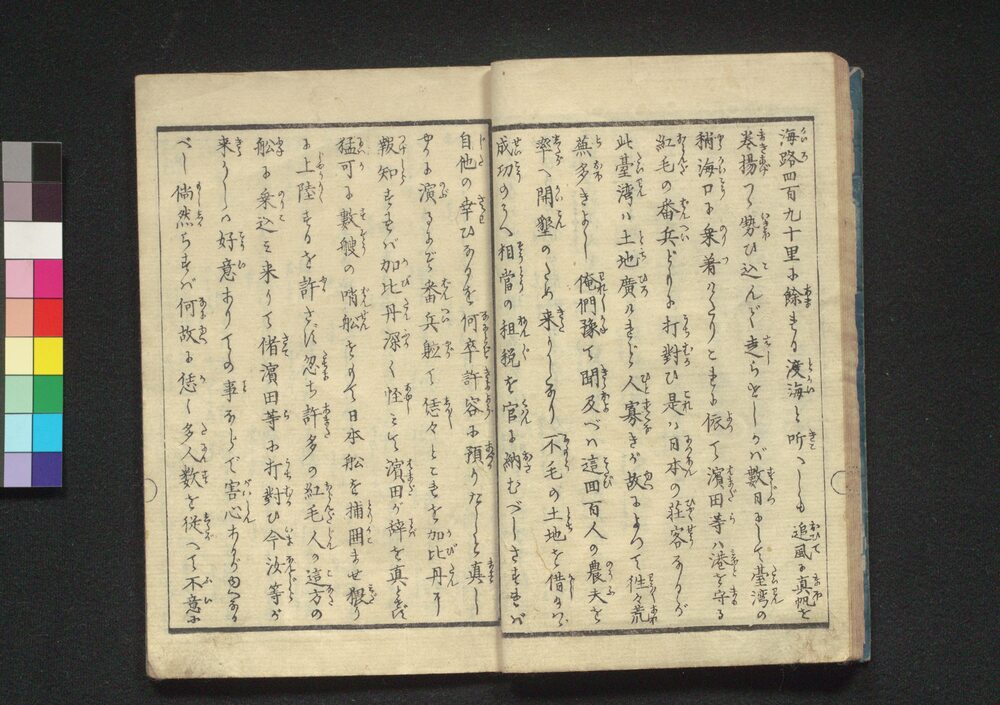 海路四百九十里に餘まる渡海と聴へしも追風に真帆を
巻揚つゝ勢ひ込んで走らせしかバ數日にして臺湾の
稍海口に乗着けたりこゝに依て濱田等ハ港を守る
紅毛の番兵どもに打對ひ是ハ日本の荘客なるが
此臺湾ハ土地廣けれど人寡きが故によつて徃々荒
蕪多きよし俺們豫て聞及べバ這回四百人の農夫を
率へ開墾のため来りしなり不毛の土地を借なバ
成功のうへ相當の租税を官に納むべしさすれバ
自他の幸ひなるを何卒許容に預りたしと真し
やかに演るにぞ番兵軈て恁々とこれを加比丹に
報知すれバ加比丹深く怪みて濱田が辞を真とせず
猛可に數艘の哨船をもて日本船を捕囲ませ猥り
に上陸するを許さず忽ち許多の紅毛人の這方の
船に乗込み来りて偖濱田等に打對ひ今汝等が
来りしハ好意ありての事なるや害心ありや
べし倘然らずバ何故に恁く多人数を従へて不意に